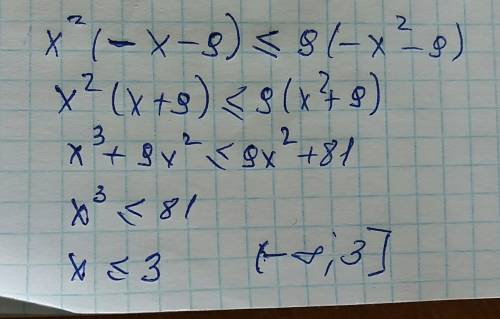 x²(-x-9) ≤ 9(-x²-9)
x²(x+9) ≤ 9(x²+9)
x³+9x² ≤ 9x²+81
x³ ≤ 81
x ≤ 3 (-∞; 3]